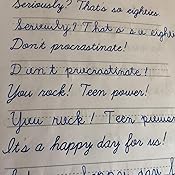 Seriously? That's so eighties.
Seriously? That's so eighties
Don't procrastinate!
Don't procrastinate!
You rock! Teen power!
You rock! Teen power
It's a happy day for us!
happy day f